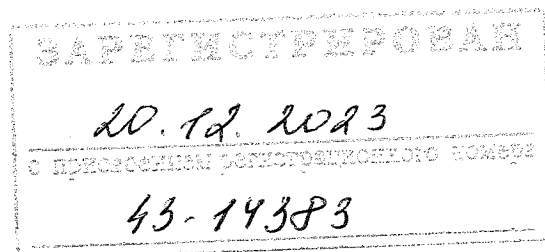 ЗАРЕГИСТРИРОВАН
20.12.2023
с присвоением регистрационного номера
43-14383